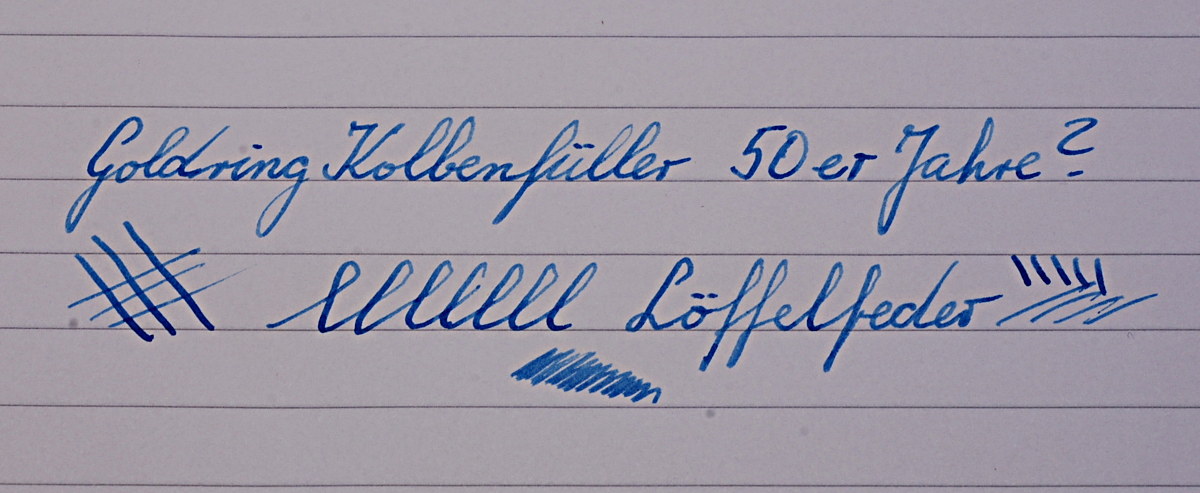 Goldring Kolbenfüller 50er Jahre?
Löffelfeder